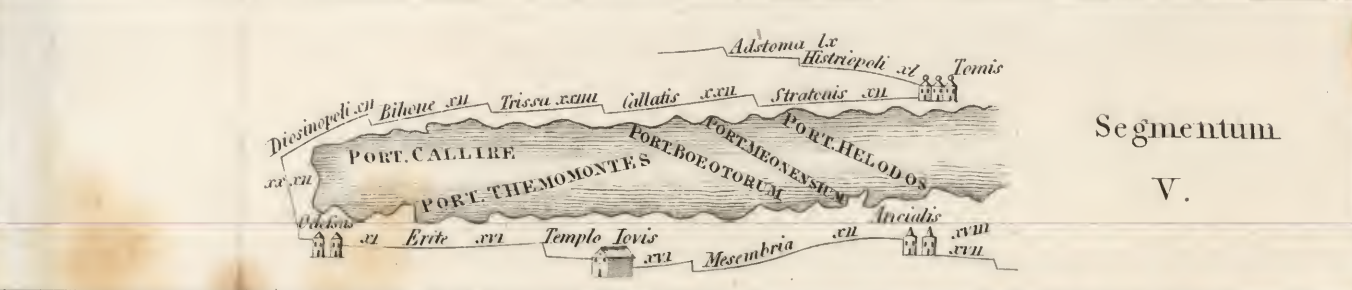 Adstoma lx
Histriopoli xl Tomis
Diosinopoli xii Bihone xii Trissa xxiiii Callatis xxii Stratonis xii
PORT. CALLIRE
PORT. THEMOMONTES
PORT. BOEOTORUM
PORT. MEONENSIUM
PORT. HELODOS
xx xii
Odessus xi Erite xvi Templo Iovis xvi Mesembria xii Ancialis xviii
xvii
Segmentum
V.